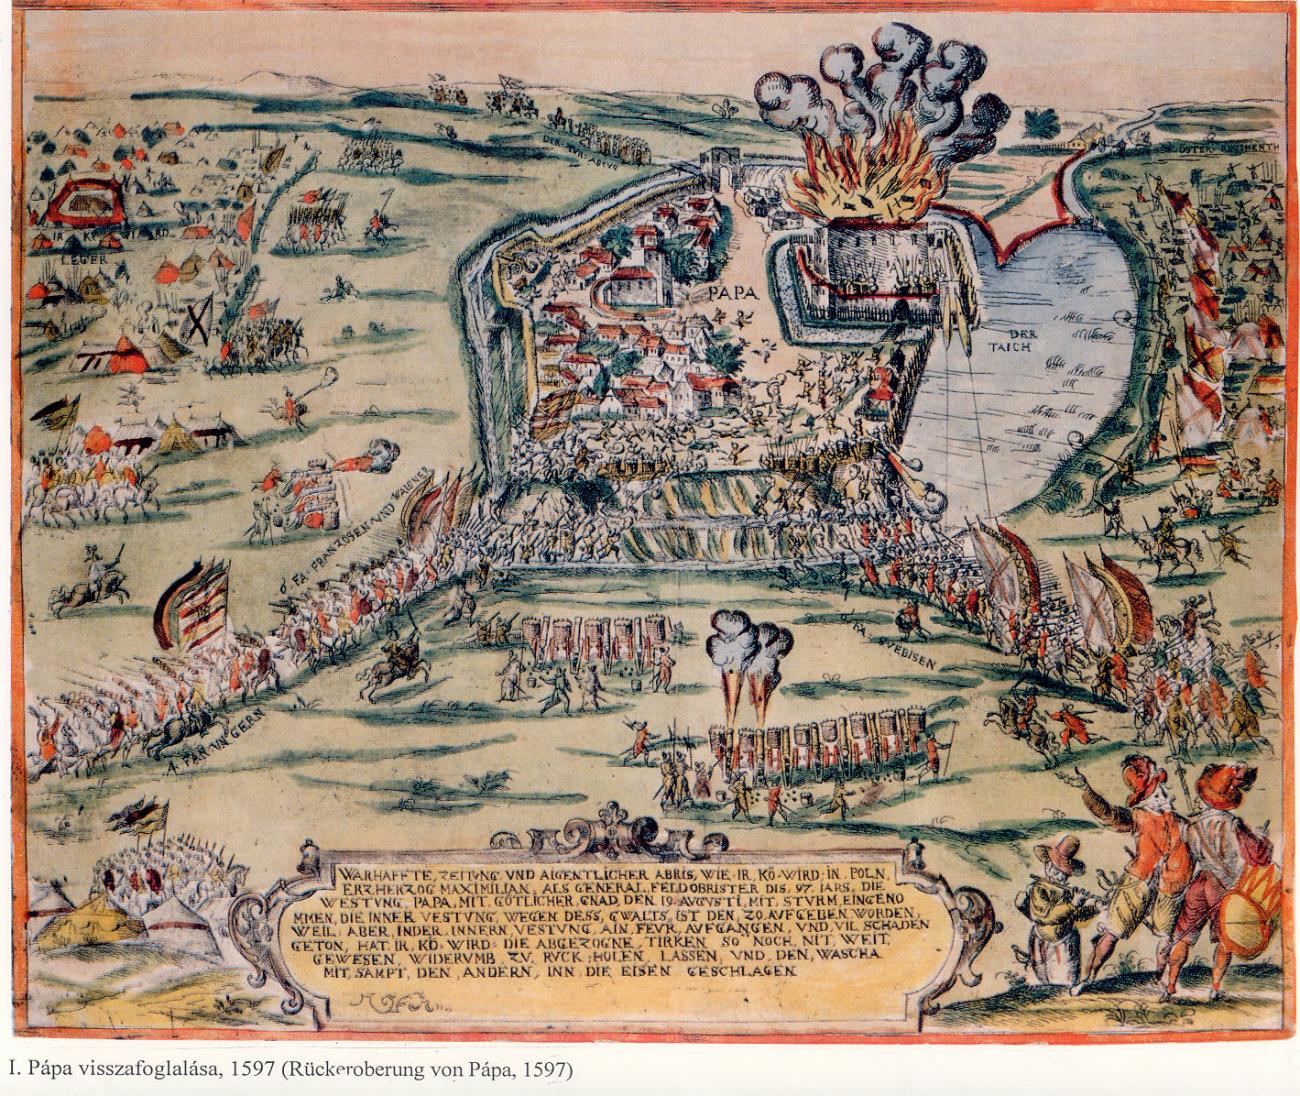 DER TIR: ABZUG
OSTER: REGIMENTH
IR KÖ: WIRD:
LEGER
PAPA
DER
TAICH
FA: FRANZOSEN AND WALONEN
A FAN VNGERN
FA
WARHAFFTE, ZEITVNG, VND AIGENTLICHER ABRIS, WIE IR, KÖ: WIRD: IN, POLN,
ERZHERZOG MAXIMILIAN, ALS GENERAL, FELDOBRISTER DIS, 97, IARS, DIE
WESTVNG, PAPA, MIT, GÖTLICHER, GNAD, DEN 19 AVGVSTI, MIT, STVRM, EINGENO
MMEN, DIE INNER VESTVNG, WEGEN DESS, GWALTS, IST DEN, 20 AUFGEBEN WORDEN,
WEIL, ABER, INDER, INNERN, VESTVNG, AIN, FEVR, AVFGANGEN, VND, VIL SCHADEN
GETON, HAT, IR, KÖ: WIRD: DIE ABGEZOGNE, TIRKEN SO NOCH, NIT, WEIT,
GEWESEN, WIDERVMB, ZV, RVCK, HOLEN, LASSEN, VND, DEN, WASCHA
MIT, SAMPT, DEN, ANDERN, INN, DIE EISEN GESCHLAGEN
I. Pápa visszafoglalása, 1597 (Rückeroberung von Pápa, 1597)